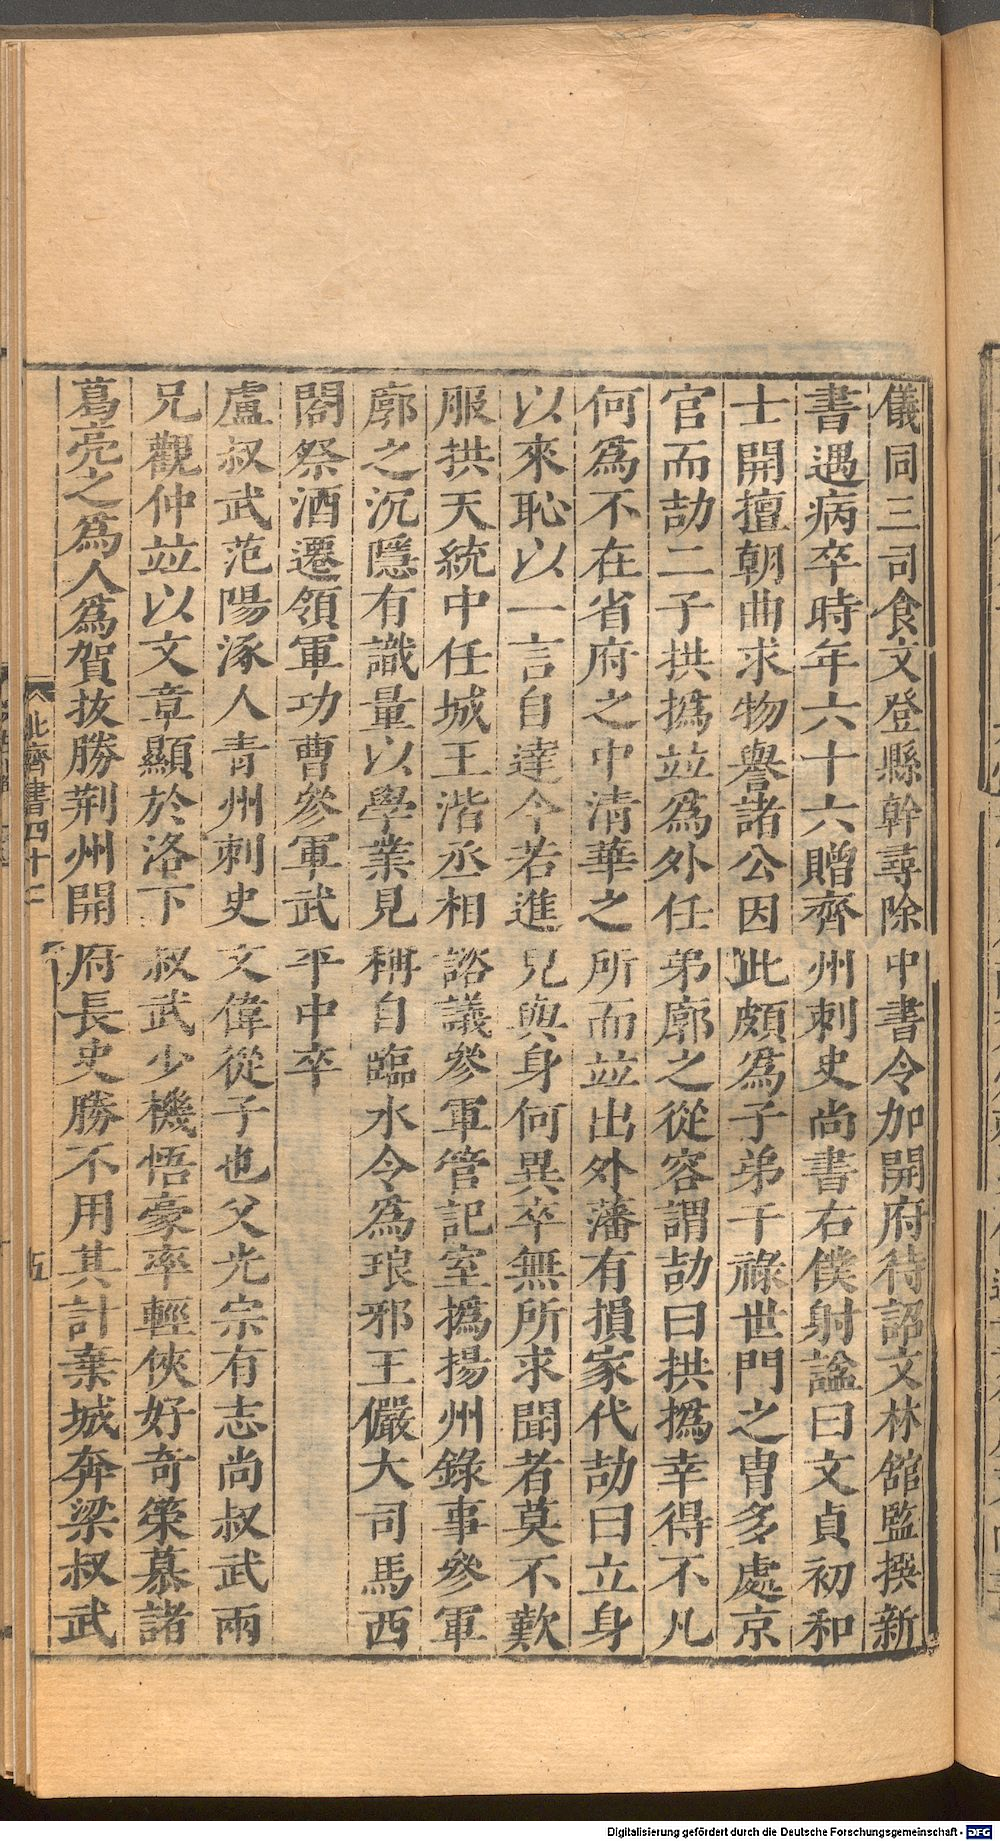 儀同三司食文登縣幹尋除中書令加開府待詔文林館監撰新
書遇病卒時年六十六贈齊州刺史尚書右僕射諡曰文貞初和
士開擅朝曲求物譽諸公因此頗為子弟干祿世門之胄多處京
官而劼二子拱撝竝為外任弟廓之從容謂劼曰拱撝幸得不凡
何為不在省府之中清華之所而竝出外藩有損家代劼曰立身
以來恥以一言自達今若進兄與身何異卒無所求聞者莫不歎
服拱天統中任城王湝丞相諮議參軍管記室撝揚州錄事參軍
廓之沉隱有識量以學業見稱自臨水令為琅邪王儼大司馬西
閤祭酒遷領軍功曹參軍武平中卒
盧叔武范陽涿人青州刺史文偉從子也父光宗有志尚叔武兩
兄觀仲竝以文章顯於洛下叔武少機悟豪率輕俠好奇策慕諸
葛亮之為人為賀拔勝荊州開府長史勝不用其計棄城奔梁叔武
北齊書四十二
五
Digitalisierung gefördert durch die Deutsche Forschungsgemeinschaft - DFG